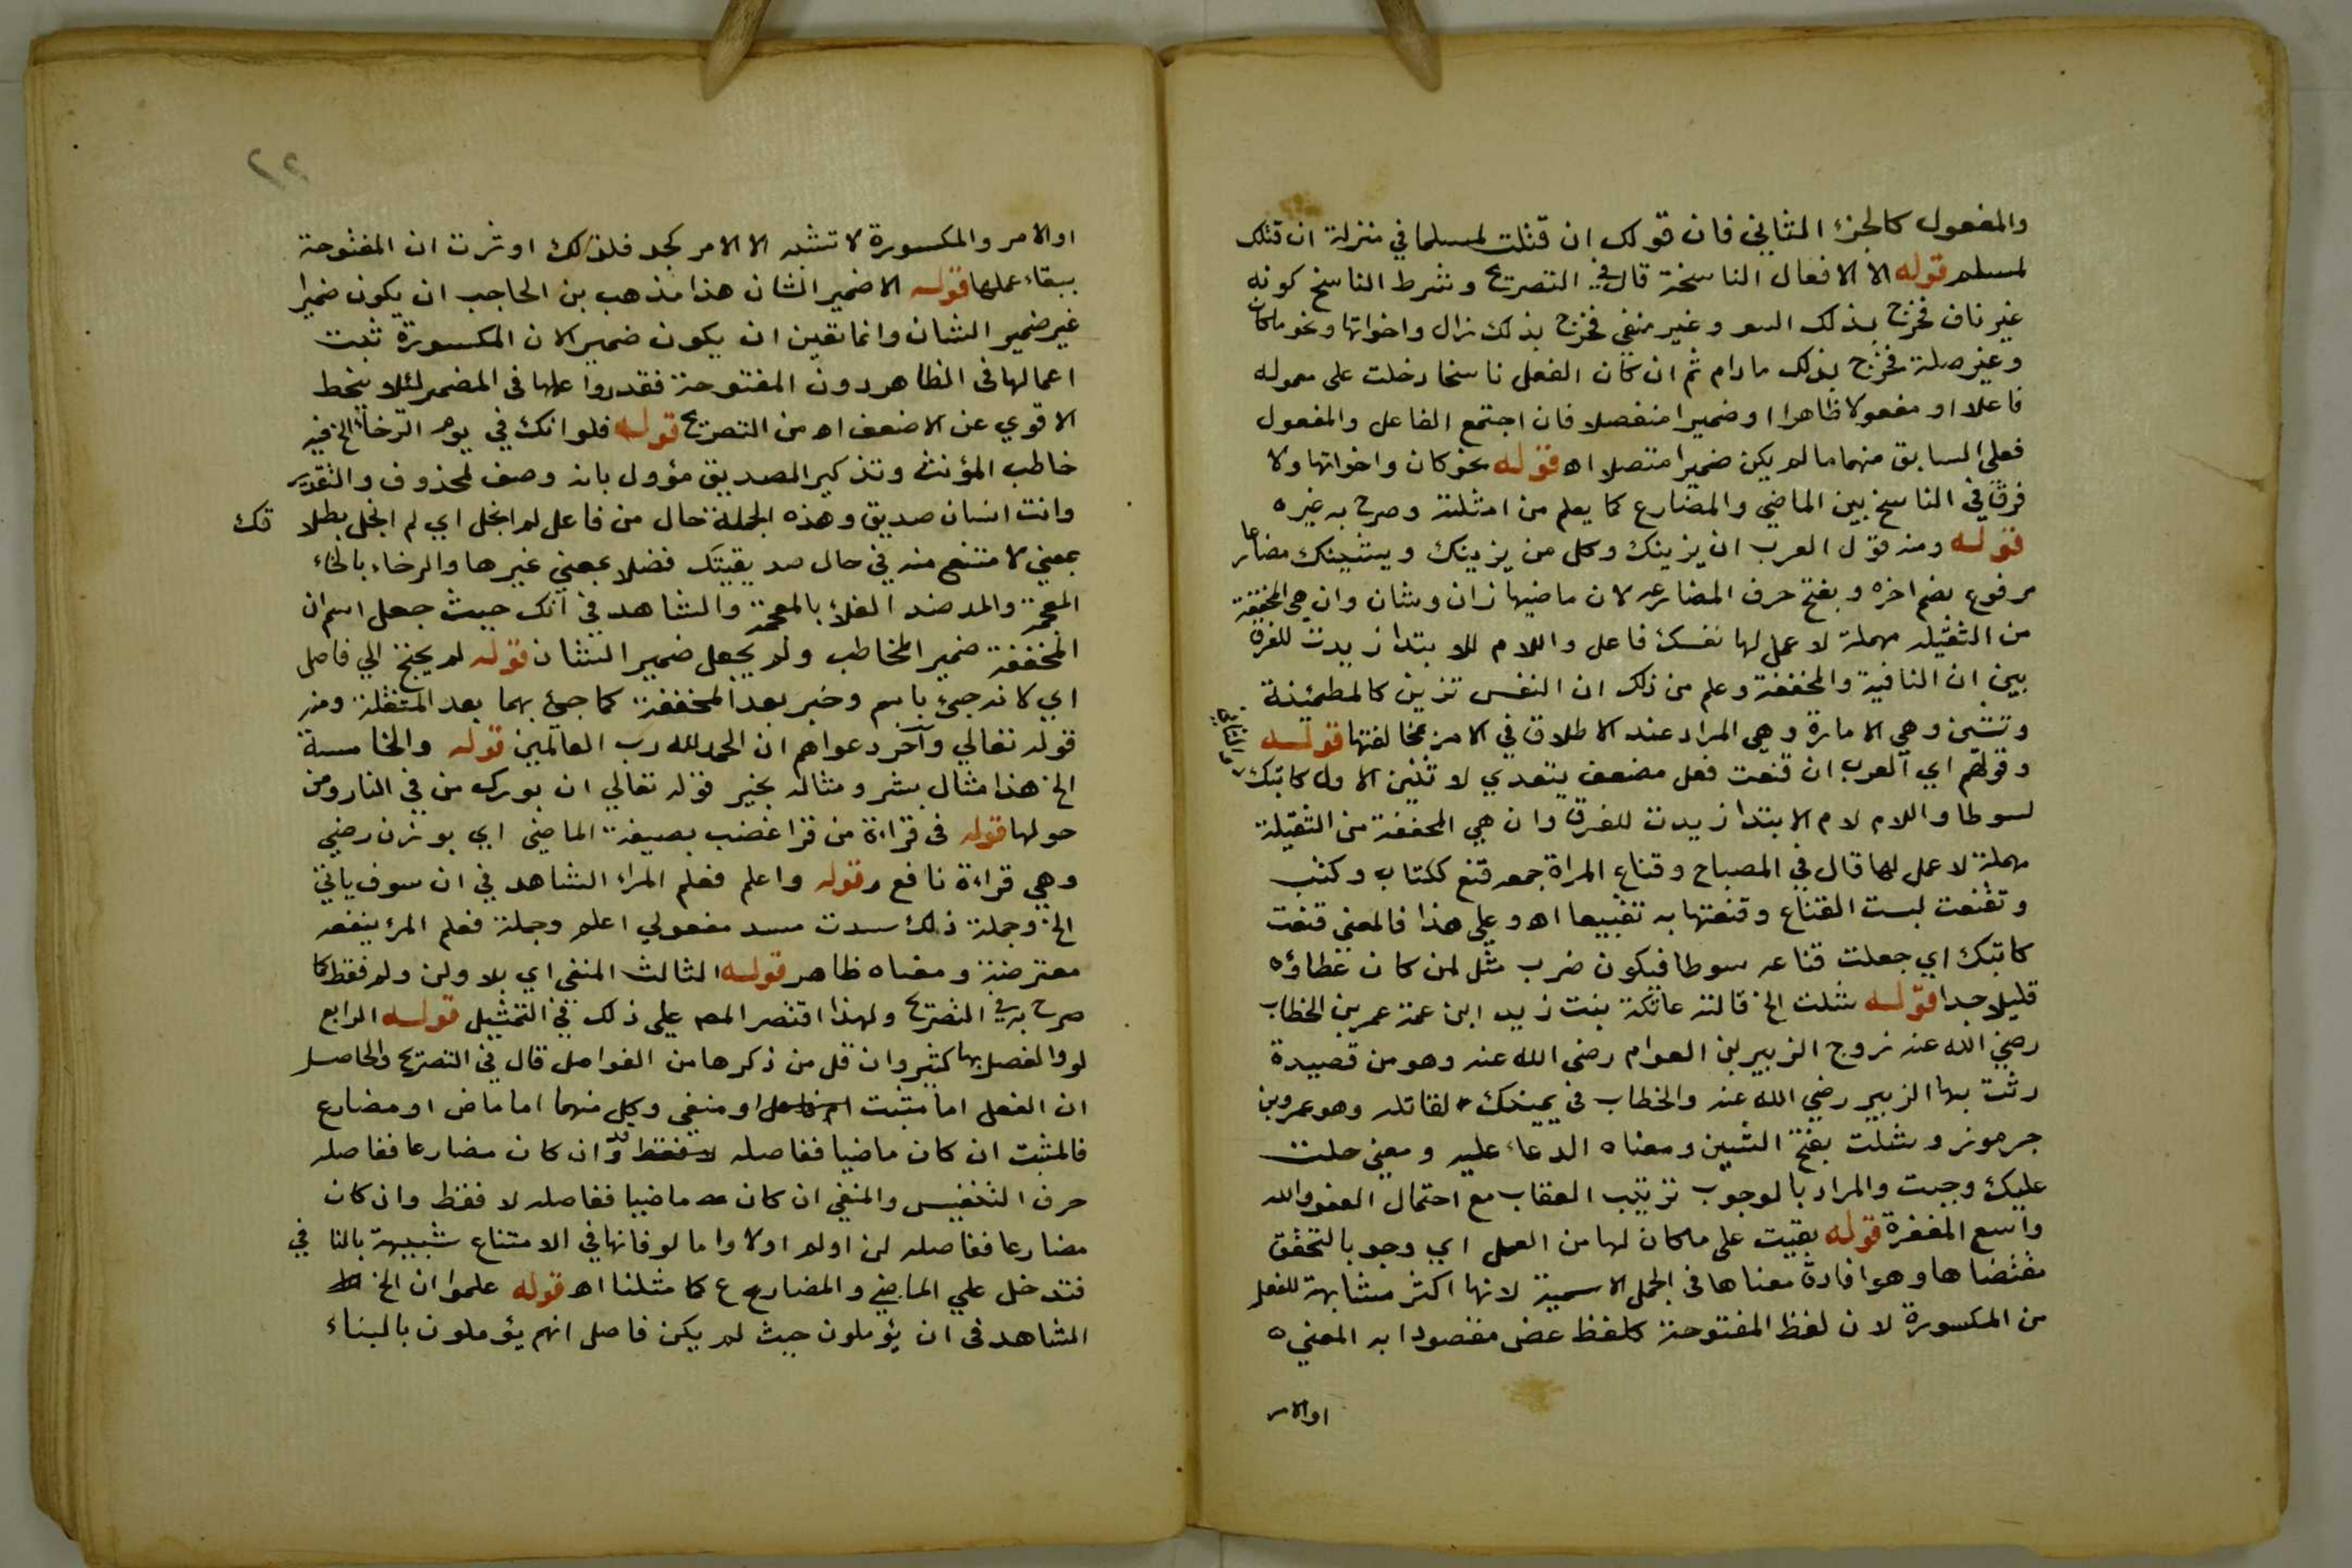 والمفعول كالجزء الثاني فان قولك ان قتلت لمسلما في منزلة ان قتلك
لمسلم قوله الا الافعال الناسخة قال في التصريح وشرط الناسخ كونه
غير ناف فخرج بذلك ليس وغير منفي فخرج بذلك زال واخواتها ونحو ماكان
وغير صلة فخرج بذلك مادام ثم ان كان الفعل ناسخا دخلت على معموله
فاعلا او مفعولا ظاهرا اوضميرا منفصلا فان اجتمع الفاعل والمفعول
فعلى السابق منهما مالم يكن ضميرا متصلا اه قوله نحو كان واخواتها ولا
فرق في الناسخ بين الماضي والمضارع كما يعلم من امثلته وصرح به غيره
قوله ومنه قول العرب ان يزينك وكل من يزينك ويشينك مضارعا
مرفوع بضم اخره وبفتح حرف المضارعه لان ماضيها زان وشان وان هي المخففة
من الثقيله مهملة لا عمل لها نفسك فاعل واللام للابتدا زيدت للفرق
بين ان النافية والمخففة وعلم من ذلك ان النفس تزين كالمطمئنة
وتشين وهي الامارة وهي المراد عند الاطلاق في الامر بمخالفتها قوله
وقولهم اي العرب ان قنعت فعل مضعف يتعدي لاثنين الاول كاتبك والثاني
لسوطا واللام لام الابتدا زيدت للفرق وان هي المخففة من الثقيلة
مهملة لاعمل لها قال في المصباح وقناع المراة جمعه قنع ككتاب وكتب
وتقنعت لبست القناع وقنعتها به تقنيعا اه وعلى هذا فالمعنى قنعت
كاتبك اي جعلت قناعه سوطا فيكون ضرب مثل لمن كان غطاؤه
قليلا جدا قوله شلت الخ قالته عاتكة بنت زيد ابن عمة عمر بن الخطاب
رضي الله عنه زوج الزبير بن العوام رضى الله عنه وهو من قصيدة
رثت بها الزبير رضي الله عنه والخطاب في يمينك لقاتله وهو عمرو بن
جرموز وشلت بفتح الشين ومعناه الدعاء عليه ومعنى حلت
عليك وجبت والمراد بالوجوب ترتيب العقاب مع احتمال العفو والله
واسع المغفرة قوله بقيت على ماكان لها من العمل اي وجوبا لتحقق
مقتضاها وهو افادة معناها في الجمل الاسمية لانها اكثر مشابهة للفعل
من المكسورة لان لفظ المفتوحة كلفظ عض مقصودا به المعني
اوالامر
٢٢
اوالامر والمكسورة لا تشبه الا الامر كجد فلذلك اوثرت ان المفتوحة
ببقاء عملها قوله الاضمير الشان هذا مذهب بن الحاجب ان يكون ضميرا
غير ضمير الشان وانما تعين ان يكون ضمير الان المكسورة ثبت
اعمالها فى الظاهر دون المفتوحة فقدروا عملها في المضمر لئلا ينحط
الاقوي عن الاضعف اه من التصريح قوله فلوانك في يوم الرخاء الخ فيه
خاطب المؤنث وتذكير الصديق مؤول بانه وصف لمحذوف والتقدير
وانت انسان صديق وهذه الجملة حال من فاعل لم ابخل اي لم ابخل بطلا قك
بمعنى لامتنع منه في حال صديقيتك فضلا بمعني غيرها والرخاء بالخاء
المعجمة والمد ضد الغلا بالمعجمة والشاهد في انك حيث جعل اسم ان
المخففة ضمير المخاطب ولم يجعل ضمير الشان قوله لم يحتج الي فاصل
اي لانه جيئ باسم وخبر بعد المخففة كما جيئ بهما بعد المثقلة ومنه
قوله تعالي وآخر دعواهم ان الحمد لله رب العالمين قوله والخامسة
الخ هذا مثال بشر ومثاله بخير قوله تعالي ان بورك من في النار ومن
حولها قوله فى قراءة من قرا غضب بصيغة الماضي اي بوزن رضي
وهي قراءة نافع قوله واعلم فعلم المرء الشاهد في ان سوف ياتي
الخ وجملة ذلك سدت مسد مفعولي اعلم وجملة فعلم المرء ينفعه
معترضة ومعناه ظاهر قوله الثالث المنفي اي بلا ولن ولم فقط كما
صرح به في التصريح ولهذا اقتصر المصه على ذلك في التمثيل قوله الرابع
لو والفصل بها كثير وان قل من ذكرها من الفواصل قال في التصريح والحاصل
ان الفعل اما مثبت او منفي وكل منهما اما ماض او مضارع
فالمثبت ان كان ماضيا ففاصله قد وان كان مضارعا ففاصله
حرف التنفيس والمنفي ان كان ماضيا ففاصله لا فقط وان كان
مضارعا ففاصله لن اولم اولا واما لو فانها في الامتناع شبيهة بالنا في
فتدخل علي الماضي والمضارع كما مثلنا اه قوله علموا ان الخ
الشاهد فى ان يؤملون حيث لم يكن فاصل انهم يؤملون بالبناء